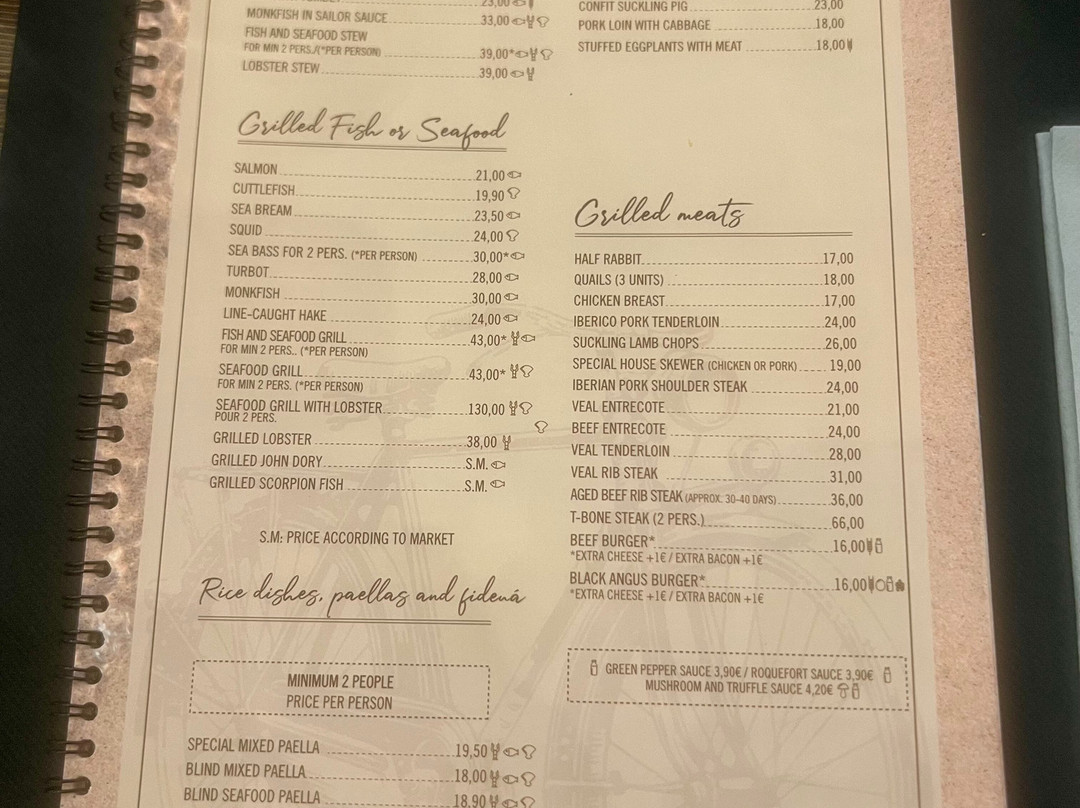 23,00
MONKFISH IN SAILOR SAUCE 33,00
FISH AND SEAFOOD STEW
FOR MIN 2 PERS./(*PER PERSON) 39,00*
LOBSTER STEW 39,00
Grilled Fish or Seafood
SALMON 21,00
CUTTLEFISH 19,90
SEA BREAM 23,50
SQUID 24,00
SEA BASS FOR 2 PERS. (*PER PERSON) 30,00*
TURBOT 28,00
MONKFISH 30,00
LINE-CAUGHT HAKE 24,00
FISH AND SEAFOOD GRILL 43,00*
FOR MIN 2 PERS.. (*PER PERSON)
SEAFOOD GRILL 43,00*
FOR MIN 2 PERS. (*PER PERSON)
SEAFOOD GRILL WITH LOBSTER 130,00
POUR 2 PERS.
GRILLED LOBSTER 38,00
GRILLED JOHN DORY S.M.
GRILLED SCORPION FISH S.M.
S.M: PRICE ACCORDING TO MARKET
Rice dishes, paellas and fideuá
MINIMUM 2 PEOPLE
PRICE PER PERSON
SPECIAL MIXED PAELLA 19,50
BLIND MIXED PAELLA 18,00
BLIND SEAFOOD PAELLA 18,90
CONFIT SUCKLING PIG 23,00
PORK LOIN WITH CABBAGE 18,00
STUFFED EGGPLANTS WITH MEAT 18,00
Grilled meats
HALF RABBIT 17,00
QUAILS (3 UNITS) 18,00
CHICKEN BREAST 17,00
IBERICO PORK TENDERLOIN 24,00
SUCKLING LAMB CHOPS 26,00
SPECIAL HOUSE SKEWER (CHICKEN OR PORK) 19,00
IBERIAN PORK SHOULDER STEAK 24,00
VEAL ENTRECOTE 21,00
BEEF ENTRECOTE 24,00
VEAL TENDERLOIN 28,00
VEAL RIB STEAK 31,00
AGED BEEF RIB STEAK (APPROX. 30-40 DAYS) 36,00
T-BONE STEAK (2 PERS.) 66,00
BEEF BURGER* 16,00
*EXTRA CHEESE +1€ / EXTRA BACON +1€
BLACK ANGUS BURGER* 16,00
*EXTRA CHEESE +1€ / EXTRA BACON +1€
GREEN PEPPER SAUCE 3,90€ / ROQUEFORT SAUCE 3,90€
MUSHROOM AND TRUFFLE SAUCE 4,20€